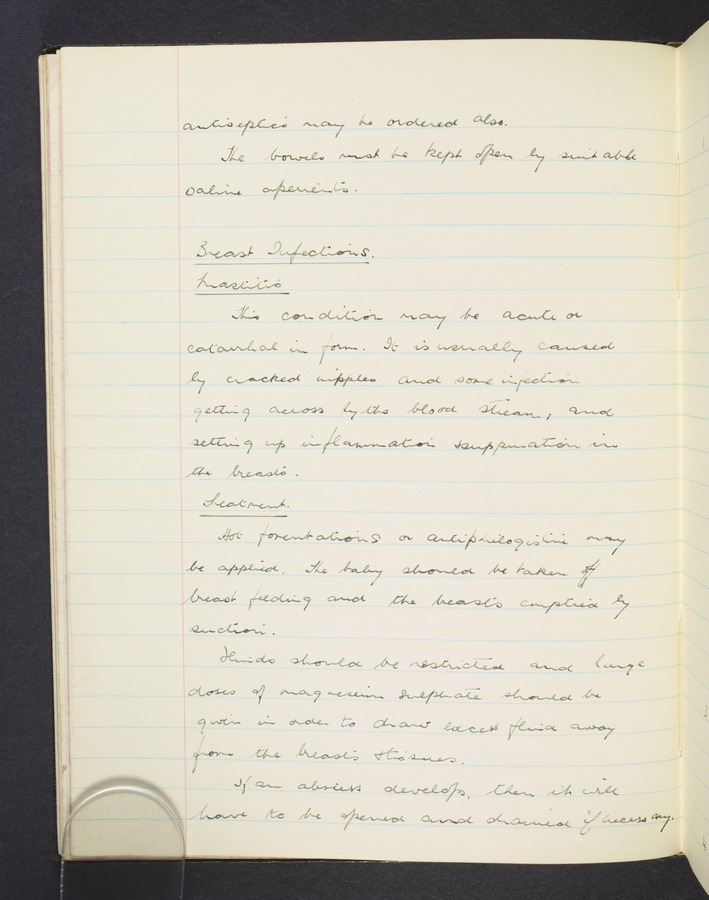 antiseptics may be ordered also.
The bowels must be kept open by suitable
saline aperients.
Breast Infections.
Mastitis
This condition may be acute or
catarrhal in form. It is usually caused
by cracked nipples and some infection
getting across by the blood stream, and
setting up inflammation & suppuration in
the breasts.
Treatment.
Hot fomentations or antiphlogistine may
be applied. The baby should be taken off
breast feeding and the breasts emptied by
suction.
Fluids should be restricted and large
doses of magnesium sulphate should be
given in order to draw excess fluid away
from the breasts & tissues.
If an abscess develops, then it will
have to be opened and drained if necessary.